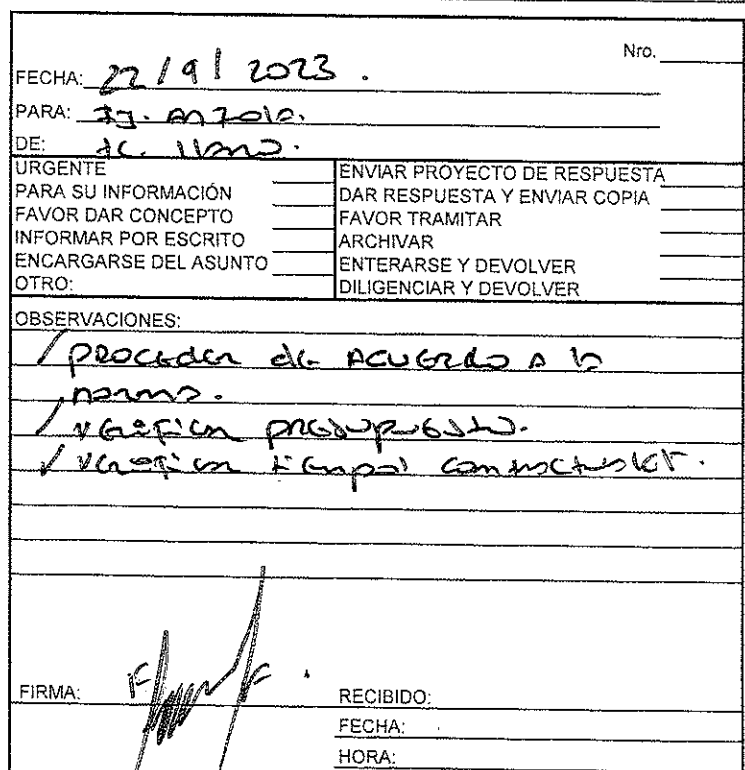 Nro.
FECHA: 22/9/2023.
PARA: Ij. Anzola.
DE: Ac. Llano.
URGENTE
PARA SU INFORMACIÓN
FAVOR DAR CONCEPTO
INFORMAR POR ESCRITO
ENCARGARSE DEL ASUNTO
OTRO:
ENVIAR PROYECTO DE RESPUESTA
DAR RESPUESTA Y ENVIAR COPIA
FAVOR TRAMITAR
ARCHIVAR
ENTERARSE Y DEVOLVER
DILIGENCIAR Y DEVOLVER
OBSERVACIONES:
/ proceder de acuerdo a la
norma.
/ verificar presupuesto.
/ verificar tiempos contractuales.
FIRMA:
RECIBIDO:
FECHA:
HORA: